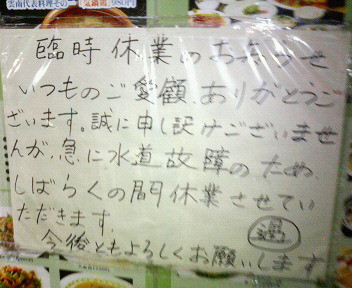 雲南代表料理その一 気鍋鶏 980円
臨時休業のおしらせ
いつものご愛顧、ありがとうご
ざいます。誠に申し訳けございませ
んが、急に水道故障のため、
しばらくの間休業させてい
ただきます。
今後ともよろしくお願いします